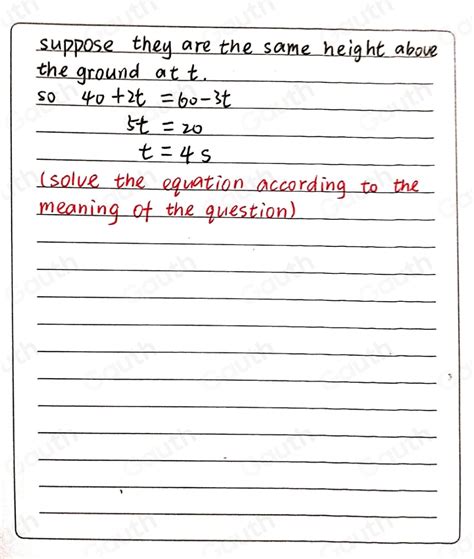 suppose they are the same height above
the ground at t.
so 40+2t = 60-3t
5t = 20
t = 4 s
(solve the equation according to the
meaning of the question)